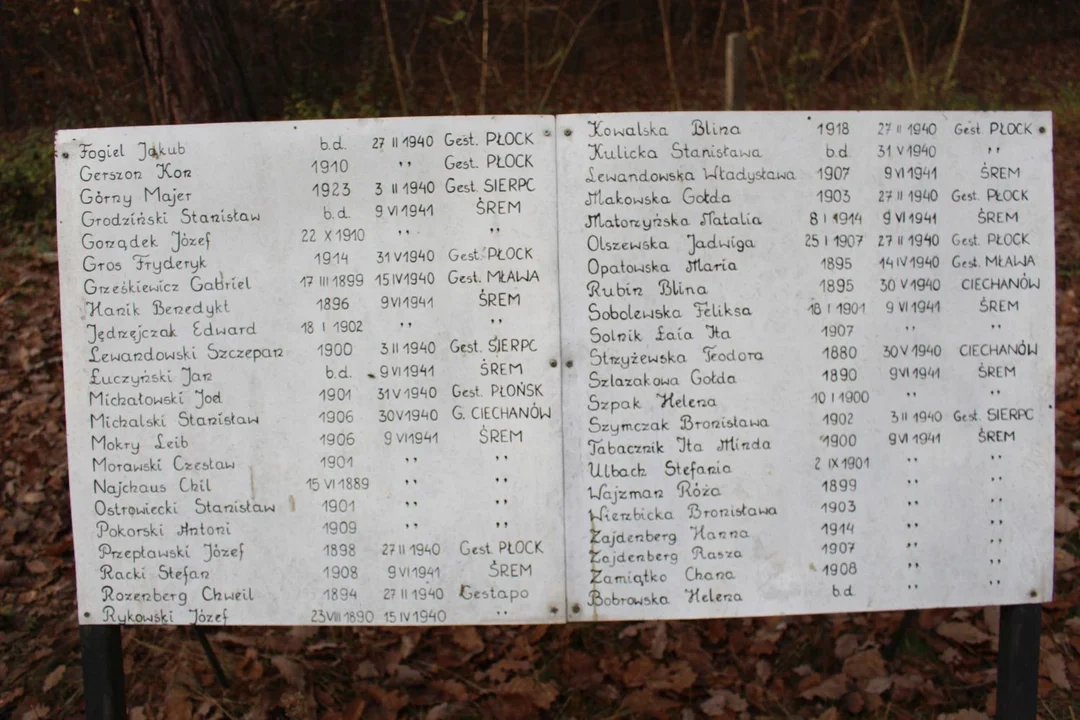 Fogiel Jakub b.d. 27 II 1940 Gest. PŁOCK
Gerszon Kon 1910 ,, Gest. PŁOCK
Górny Majer 1923 3 II 1940 Gest. SIERPC
Grodziński Stanisław b.d. 9 VI 1941 ŚREM
Gorządek Józef 22 X 1910 ,, ,,
Gros Fryderyk 1914 31 V 1940 Gest. PŁOCK
Grześkiewicz Gabriel 17 III 1899 15 IV 1940 Gest. MŁAWA
Hanik Benedykt 1896 9 VI 1941 ŚREM
Jędrzejczak Edward 18 I 1902 ,, ,,
Lewandowski Szczepan 1900 3 II 1940 Gest. SIERPC
Łuczyński Jan b.d. 9 VI 1941 ŚREM
Michałowski Jod 1901 31 V 1940 Gest. PŁOŃSK
Michalski Stanisław 1906 30 V 1940 G. CIECHANÓW
Mokry Leib 1906 9 VI 1941 ŚREM
Morawski Czesław 1901 ,, ,,
Najchaus Chil 15 VI 1889 ,, ,,
Ostrowiecki Stanisław 1901 ,, ,,
Pokorski Antoni 1909 ,, ,,
Przepławski Józef 1898 27 II 1940 Gest. PŁOCK
Racki Stefan 1908 9 VI 1941 ŚREM
Rozenberg Chweil 1894 27 II 1940 Gestapo
Rykowski Józef 23 VIII 1890 15 IV 1940 ,,
Kowalska Blina 1918 27 II 1940 Gest. PŁOCK
Kulicka Stanisława b.d 31 V 1940 ,,
Lewandowska Władysława 1907 9 VI 1941 ŚREM
Makowska Gołda 1903 27 II 1940 Gest. PŁOCK
Matorzyńska Natalia 8 I 1914 9 VI 1941 ŚREM
Olszewska Jadwiga 25 I 1907 27 II 1940 Gest. PŁOCK
Opatowska Maria 1895 14 IV 1940 Gest. MŁAWA
Rubin Blina 1895 30 V 1940 CIECHANÓW
Sobolewska Feliksa 18 I 1901 9 VI 1941 ŚREM
Solnik Łaia Ita 1907 ,, ,,
Strzyżewska Teodora 1880 30 V 1940 CIECHANÓW
Szlazakowa Gołda 1890 9 VI 1941 ŚREM
Szpak Helena 10 I 1900 ,, ,,
Szymczak Bronisława 1902 3 II 1940 Gest. SIERPC
Tabacznik Ita Minda 1900 9 VI 1941 ŚREM
Ulbach Stefania 2 IX 1901 ,, ,,
Wajzman Róża 1899 ,, ,,
Wierzbicka Bronisława 1903 ,, ,,
Zajdenberg Hanna 1914 ,, ,,
Zajdenberg Rasza 1907 ,, ,,
Zamiątko Chana 1908 ,, ,,
Bobrowska Helena b.d ,, ,,